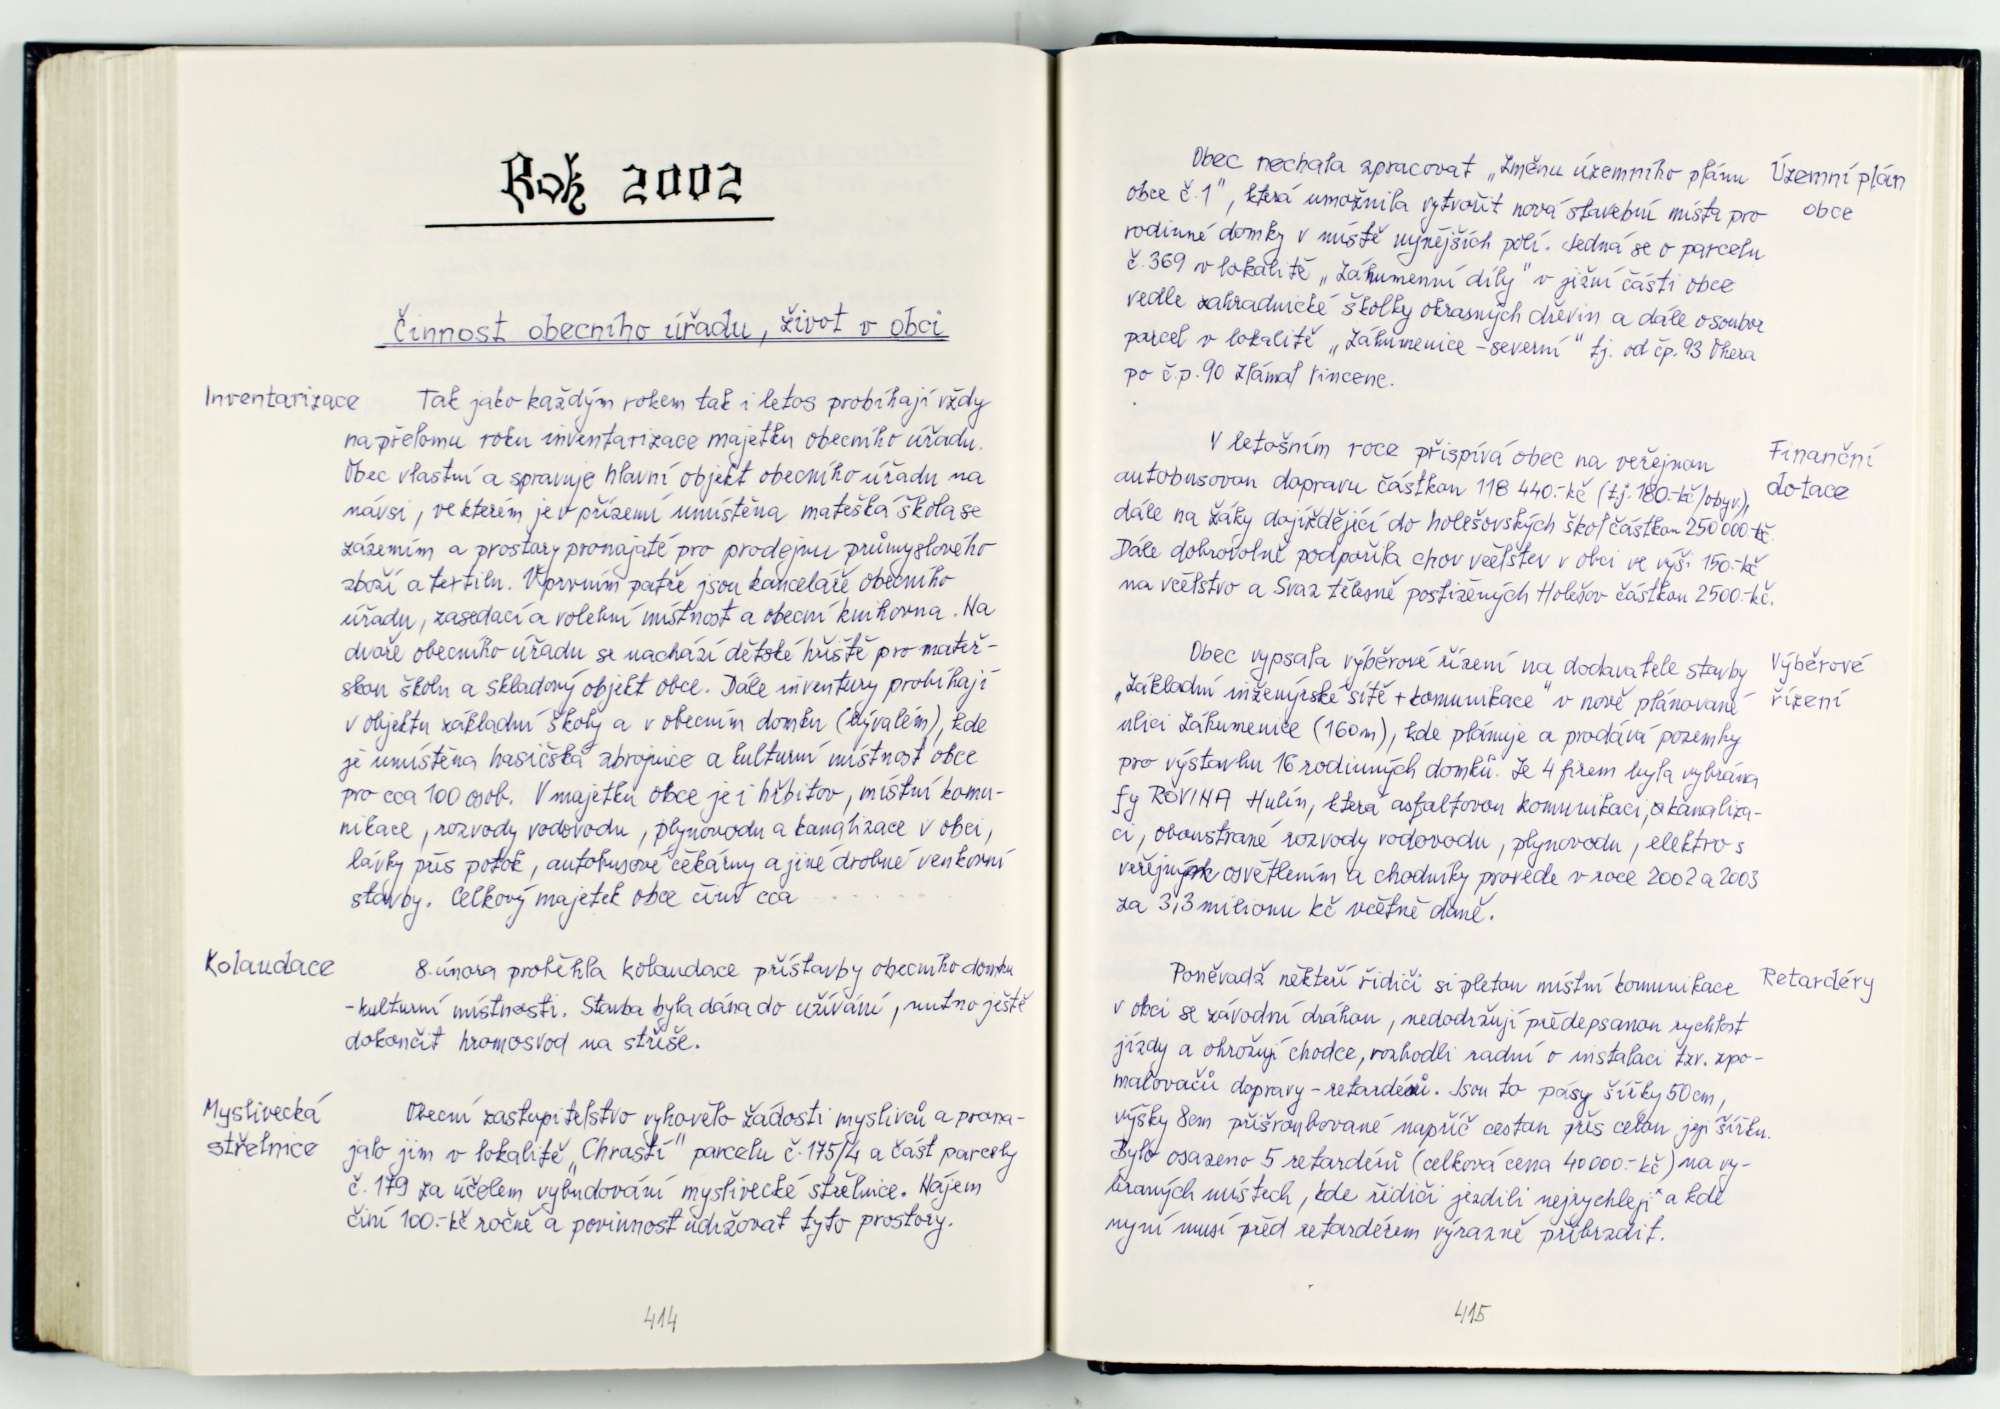 Rok 2002
Činnost obecního úřadu, život v obci
Inventarizace
Tak jako každým rokem tak i letos probíhají vždy
na přelomu roku inventarizace majetku obecního úřadu.
Obec vlastní a spravuje hlavní objekt obecního úřadu na
návsi, ve kterém je v přízemí umístěna mateřská škola se
zázemím a prostory pronajaté pro prodejnu průmyslového
zboží a textilu. V prvním patře jsou kanceláře obecního
úřadu, zasedací a volební místnost a obecní knihovna. Na
dvoře obecního úřadu se nachází dětské hřiště pro mateř-
skou školu a skladový objekt obce. Dále inventury probíhají
v objektu základní školy a v obecním domku (bývalém), kde
je umístěna hasičská zbrojnice a kulturní místnost obce
pro cca 100 osob. V majetku obce je i hřbitov, místní komu-
nikace, rozvody vodovodu, plynovodu a kanalizace v obci,
lávky přes potok, autobusové čekárny a jiné drobné venkovní
stavby. Celkový majetek obce činí cca
Kolaudace
8. února proběhla kolaudace přístavby obecního domku
-kulturní místnosti. Stavba byla dána do užívání, nutno ještě
dokončit hromosvod na střeše.
Myslivecká
střelnice
Obecní zastupitelstvo vyhovělo žádosti myslivců a prona-
jalo jim v lokalitě „Chrastí" parcelu č. 175/4 a část parcely
č. 179 za účelem vybudování myslivecké střelnice. Nájem
činí 100.-kč ročně a povinnost udržovat tyto prostory.
414
Obec nechala zpracovat „Změnu územního plánu
obce č. 1", která umožnila vytvořit nová stavební místa pro
rodinné domky v místě nynějších polí. Jedná se o parcelu
č. 369 v lokalitě „Záhumenní díly" v jižní části obce
vedle zahradnické školky okrasných dřevin a dále o soubor
parcel v lokalitě „Záhumenice - severní" tj. od čp. 93 Uhera
po č.p. 90 Zlámal Vincenc.
Územní plán
obce
V letošním roce přispívá obec na veřejnou
autobusovou dopravu částkou 118 440.-kč (tj. 180.-kč/obyv),
dále na žáky dojíždějící do holešovských škol částkou 250 000.-kč.
Dále dobrovolně podpořila chov včelstev v obci ve výši 150.-kč
na včelstvo a Svaz tělesně postižených Holešov částkou 2500.-kč.
Finanční
dotace
Obec vypsala výběrové řízení na dodavatele stavby
„Základní inženýrské sítě + komunikace" v nově plánované
ulici Záhumenice (160m), kde plánuje a prodává pozemky
pro výstavbu 16 rodinných domků. Ze 4 firem byla vybrána
fy ROVINA Hulín, která asfaltovou komunikaci, kanaliza-
ci, oboustrané rozvody vodovodu, plynovodu, elektro s
veřejným osvětlením a chodníky provede v roce 2002 a 2003
za 3,3 milionu Kč včetně daně.
Výběrové
řízení
Poněvadž někteří řidiči si pletou místní komunikace
v obci se závodní dráhou, nedodržují předepsanou rychlost
jízdy a ohrožují chodce, rozhodli radní o instalaci tzv. zpo-
malovačů dopravy - retardérů. Jsou to pásy šířky 50cm,
výšky 8cm přišroubované napříč cestou přes celou její šířku.
Bylo osazeno 5 retardérů (celková cena 40 000.-kč) na vy-
braných místech, kde řidiči jezdili nejrychleji a kde
nyní musí před retardérem výrazně přibrzdit.
Retardéry
415